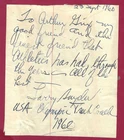 Sept 1960
To Arthur Gray
good friend and the
great friend that
Athletics has had, through
the years — All of the
best
Larry Snyder
USA Olympic Track Coach
1960